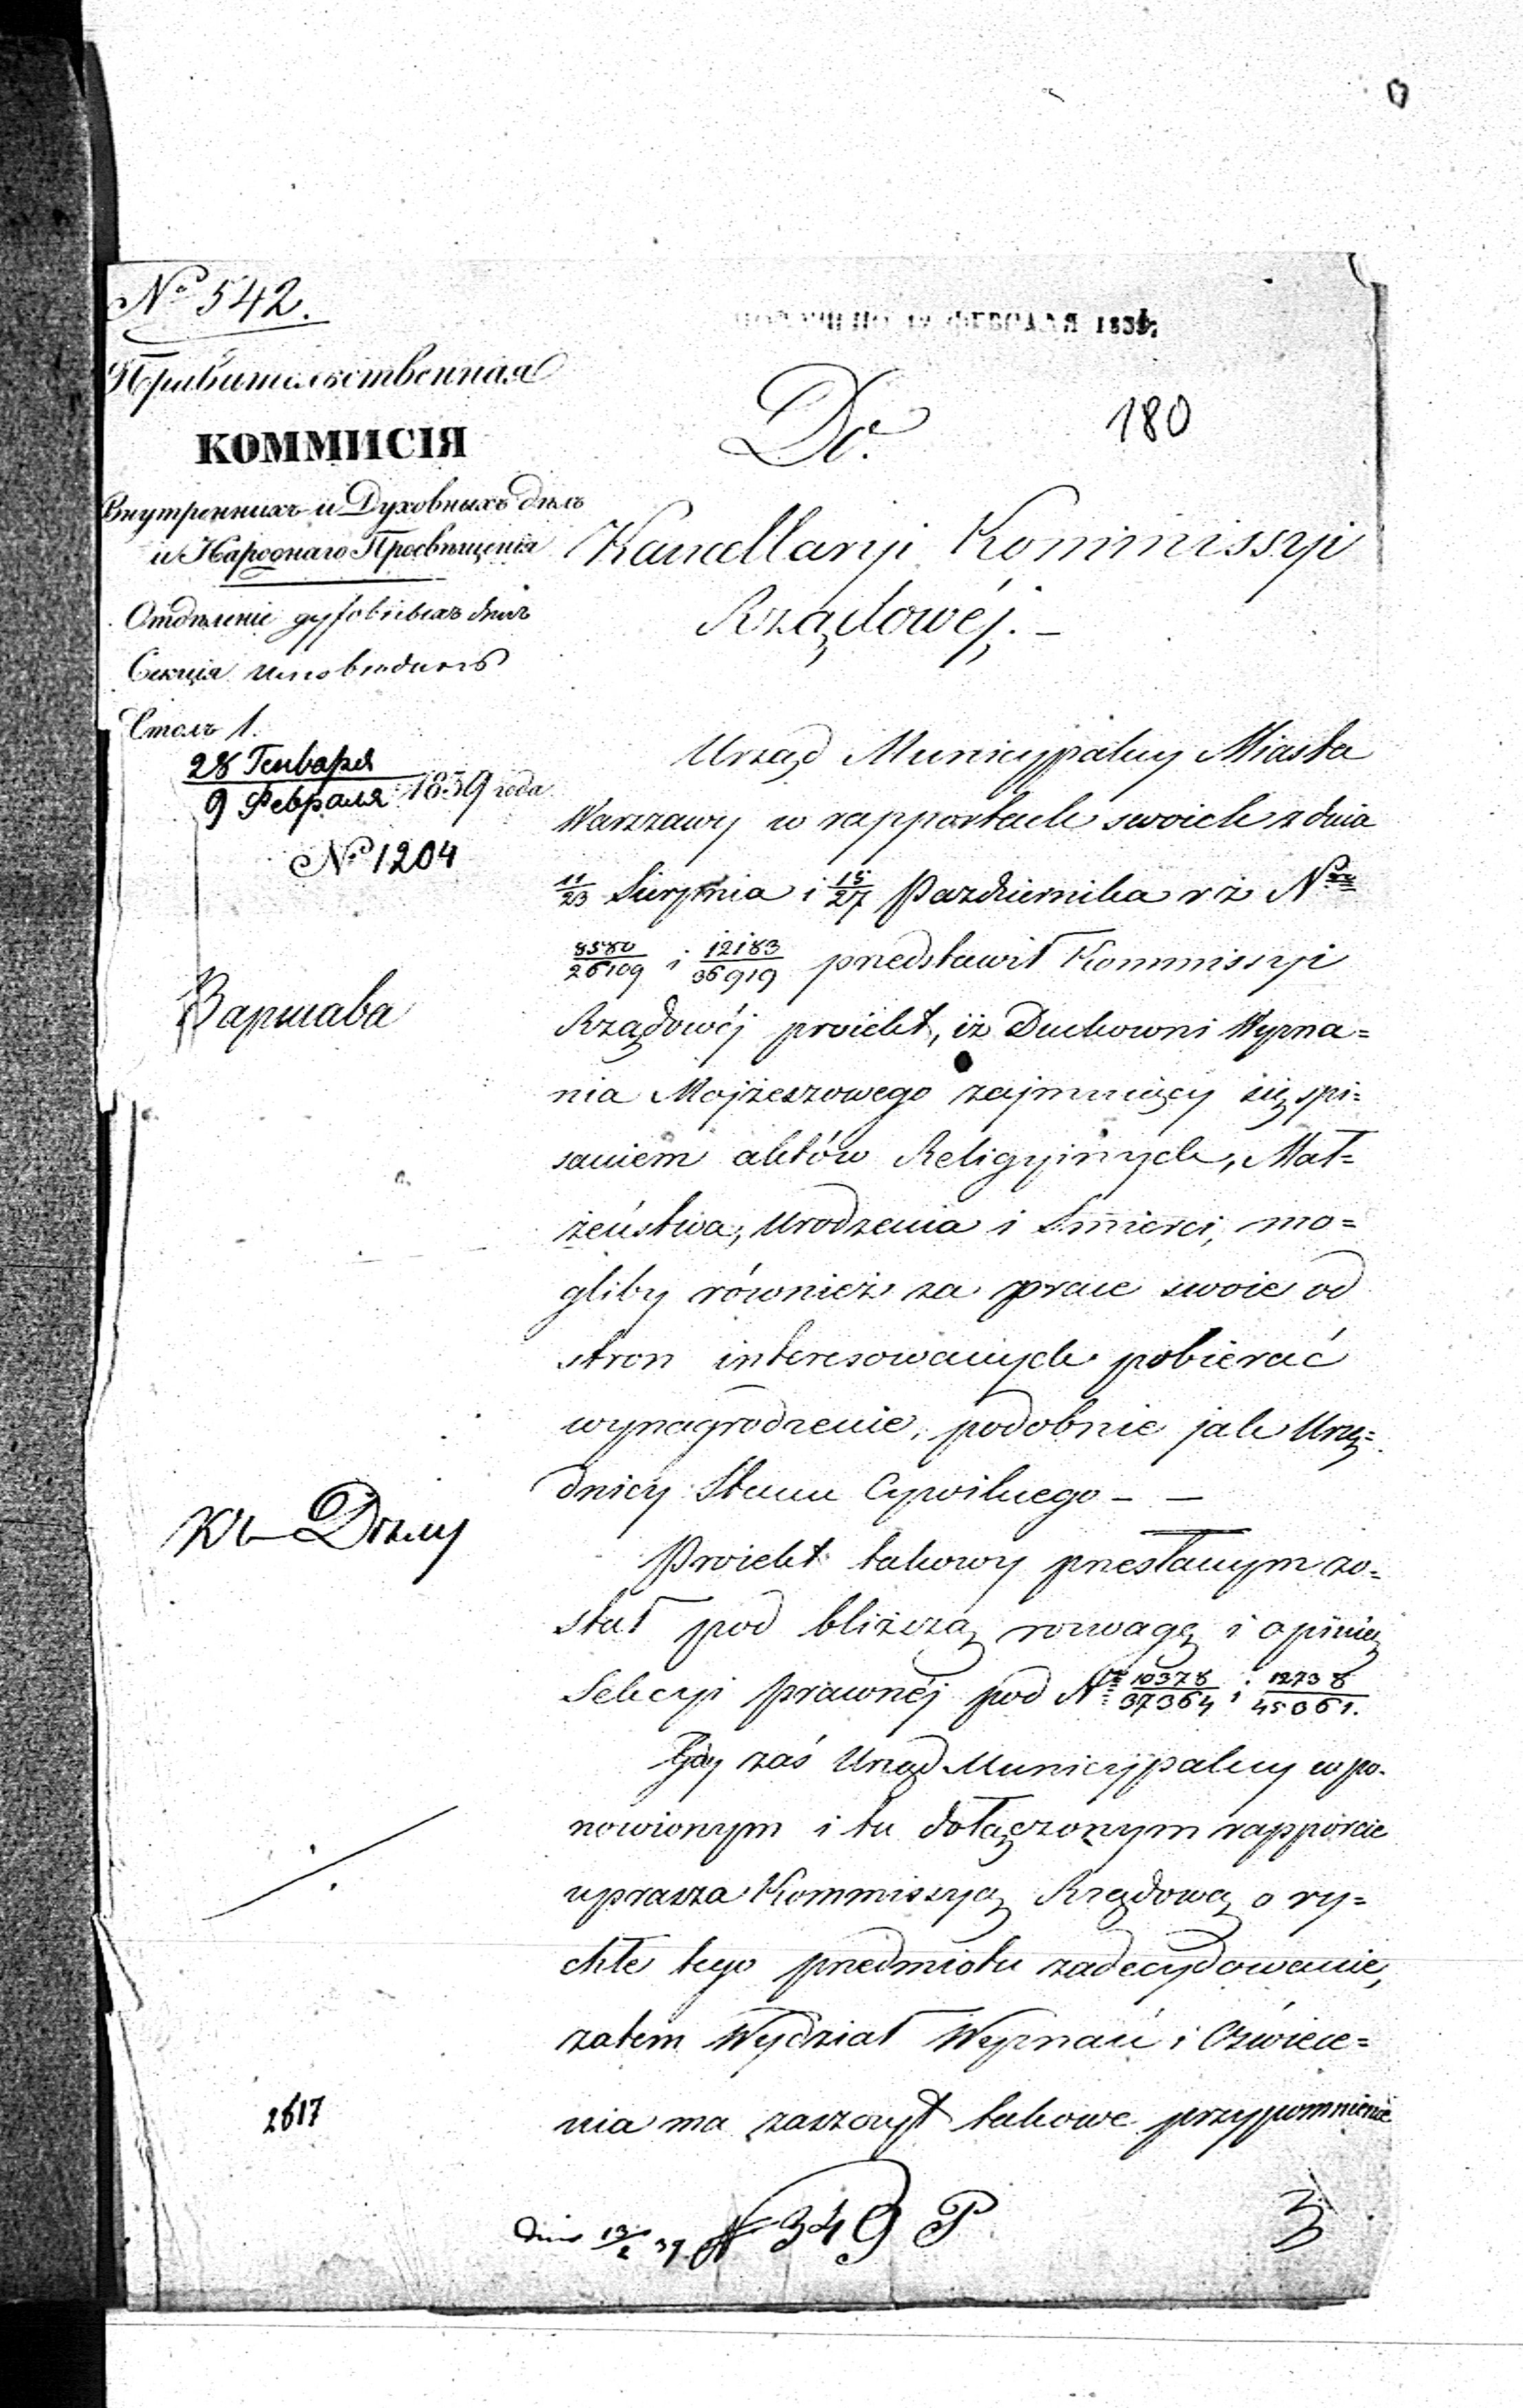 № 542.
Правительственная
КОММИСІЯ
Внутреннихъ и Духовныхъ дѣлъ
и Народнаго Просвѣщенія
Отдѣленіе духовныхъ дѣлъ
Секція исповѣданій
Столъ 1.
28 Генваря
9 Февраля 1839 года
№ 1204
Варшава
Къ Дѣлу
2617
ФЕВРАЛЯ 183
180
Do
Kancellaryi Kommissyi
Rządowéj. —
Urząd Municypalny Miasta
Warszawy w rapportach swoich z dnia
11/23 Sierpnia i 15/27 Pazdziernika r z N
8580/26109 i 12183/36919 przedstawił Kommissyi
Rządowéj proiekt, iż Duchowni Wyzna=
nia Mojżeszowego zajmuiący się spi=
saniem aktów Religyinych, Mał=
żeństwa, Urodzenia i Smierci, mo=
gliby również za prace swoie od
stron interesowanych pobierać
wynagrodzenie, podobnie jak Urzę=
dnicy Stanu Cywilnego — —
Proiekt takowy przesłanym zo=
stał pod bliższą rozwagę i opinią
Sekcyi prawnéj pod N 10378/37364 i 12738/45361.
Gdy zaś Urząd Municypalny w po=
nowionym i tu dołączonym rapporcie
uprasza Kommissyą Rządową o ry=
chłe tego przedmiotu zadecydowanie,
zatem Wydział Wyznań i Oświece=
nia ma zaszczyt takowe przypomnienie
dnia 13/2 39 N 349 P
3